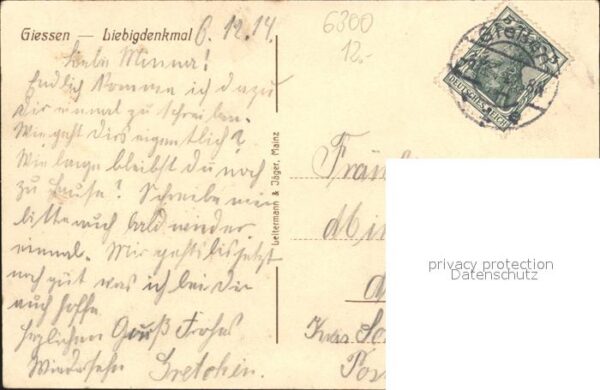 Giessen — Liebigdenkmal 6.12.14
6300
12.-
Liebe Minna!
Endlich komme ich dazu
Dir einmal zu schreiben.
Wie geht Dirs eigentlich?
Wie lange bleibst Du noch
zu Hause? Schreibe mir
bitte auch bald wieder
einmal. Mir gehts bis jetzt
noch gut was ich bei Dir
auch hoffe
Herzlichen Gruß Frohes
Wiedersehn Gretchen.
Leitermann & Jäger, Mainz
DEUTSCHES REICH
Giessen
Fräul
Min
privacy protection
Datenschutz